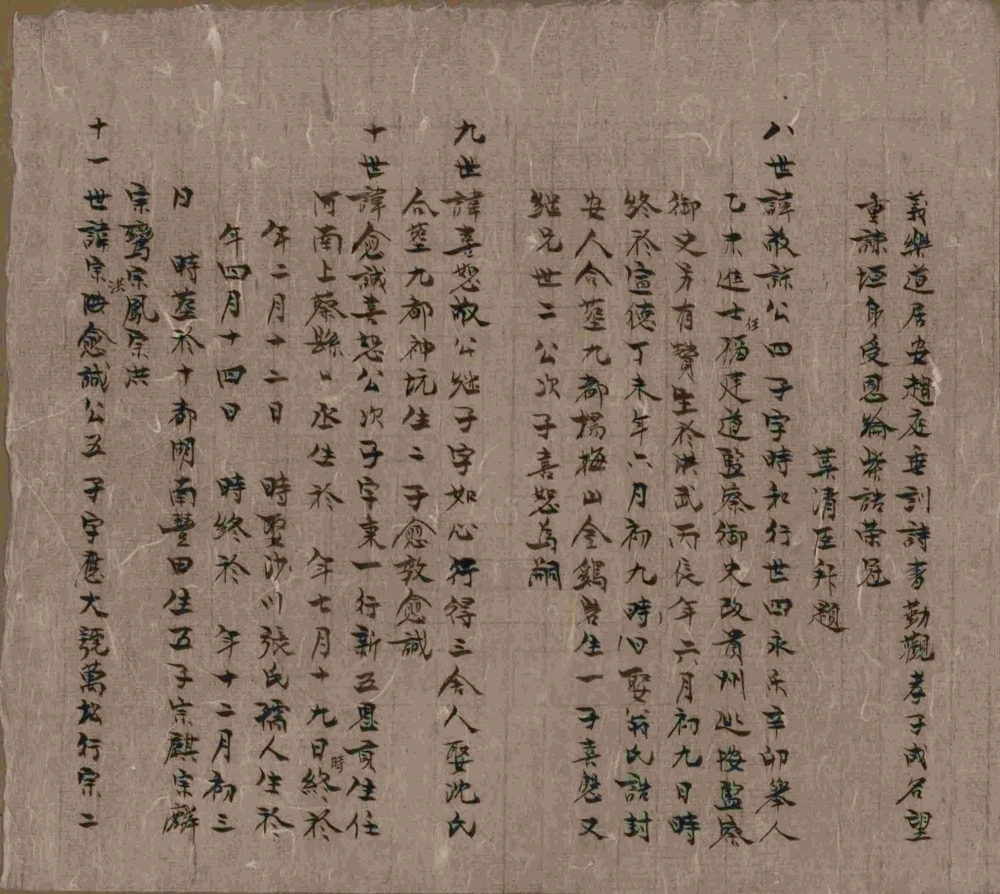 義樂道居安趨庭垂訓詩書勤觀孝子成名望
重諫垣身受恩綸榮誥榮冠
葉清臣拜題
八世諱敬諒公四子字時和行世四永乐辛卯舉人
乙未進士任福建道監察御史改貴州巡按監察
御史另有贊生於洪武丙辰年六月初九日時
終於宣德丁未年六月初九時娶翁氏誥封
安人合塟九都楊梅山金鷄岩生一子喜愍又
継兄世二公次子喜恕為嗣
九世諱喜恕敬公継子字如心行得三舍人娶沈氏
仝塟九都神坑生二子愈敦愈誠
十世諱愈誠喜恕公次子字東一行新五恩貢生任
河南上蔡縣丞生於 年七月十九日時終於
年二月十二日 時娶沙川張氏孺人生於
年四月十四日 時終於 年十二月初三
日 時塟於十都明南豐田生五子宗麒宗麟
宗鸞宗鳳宗洪
十一世諱宗洪愈誠公五子字應大號萬松行宗二